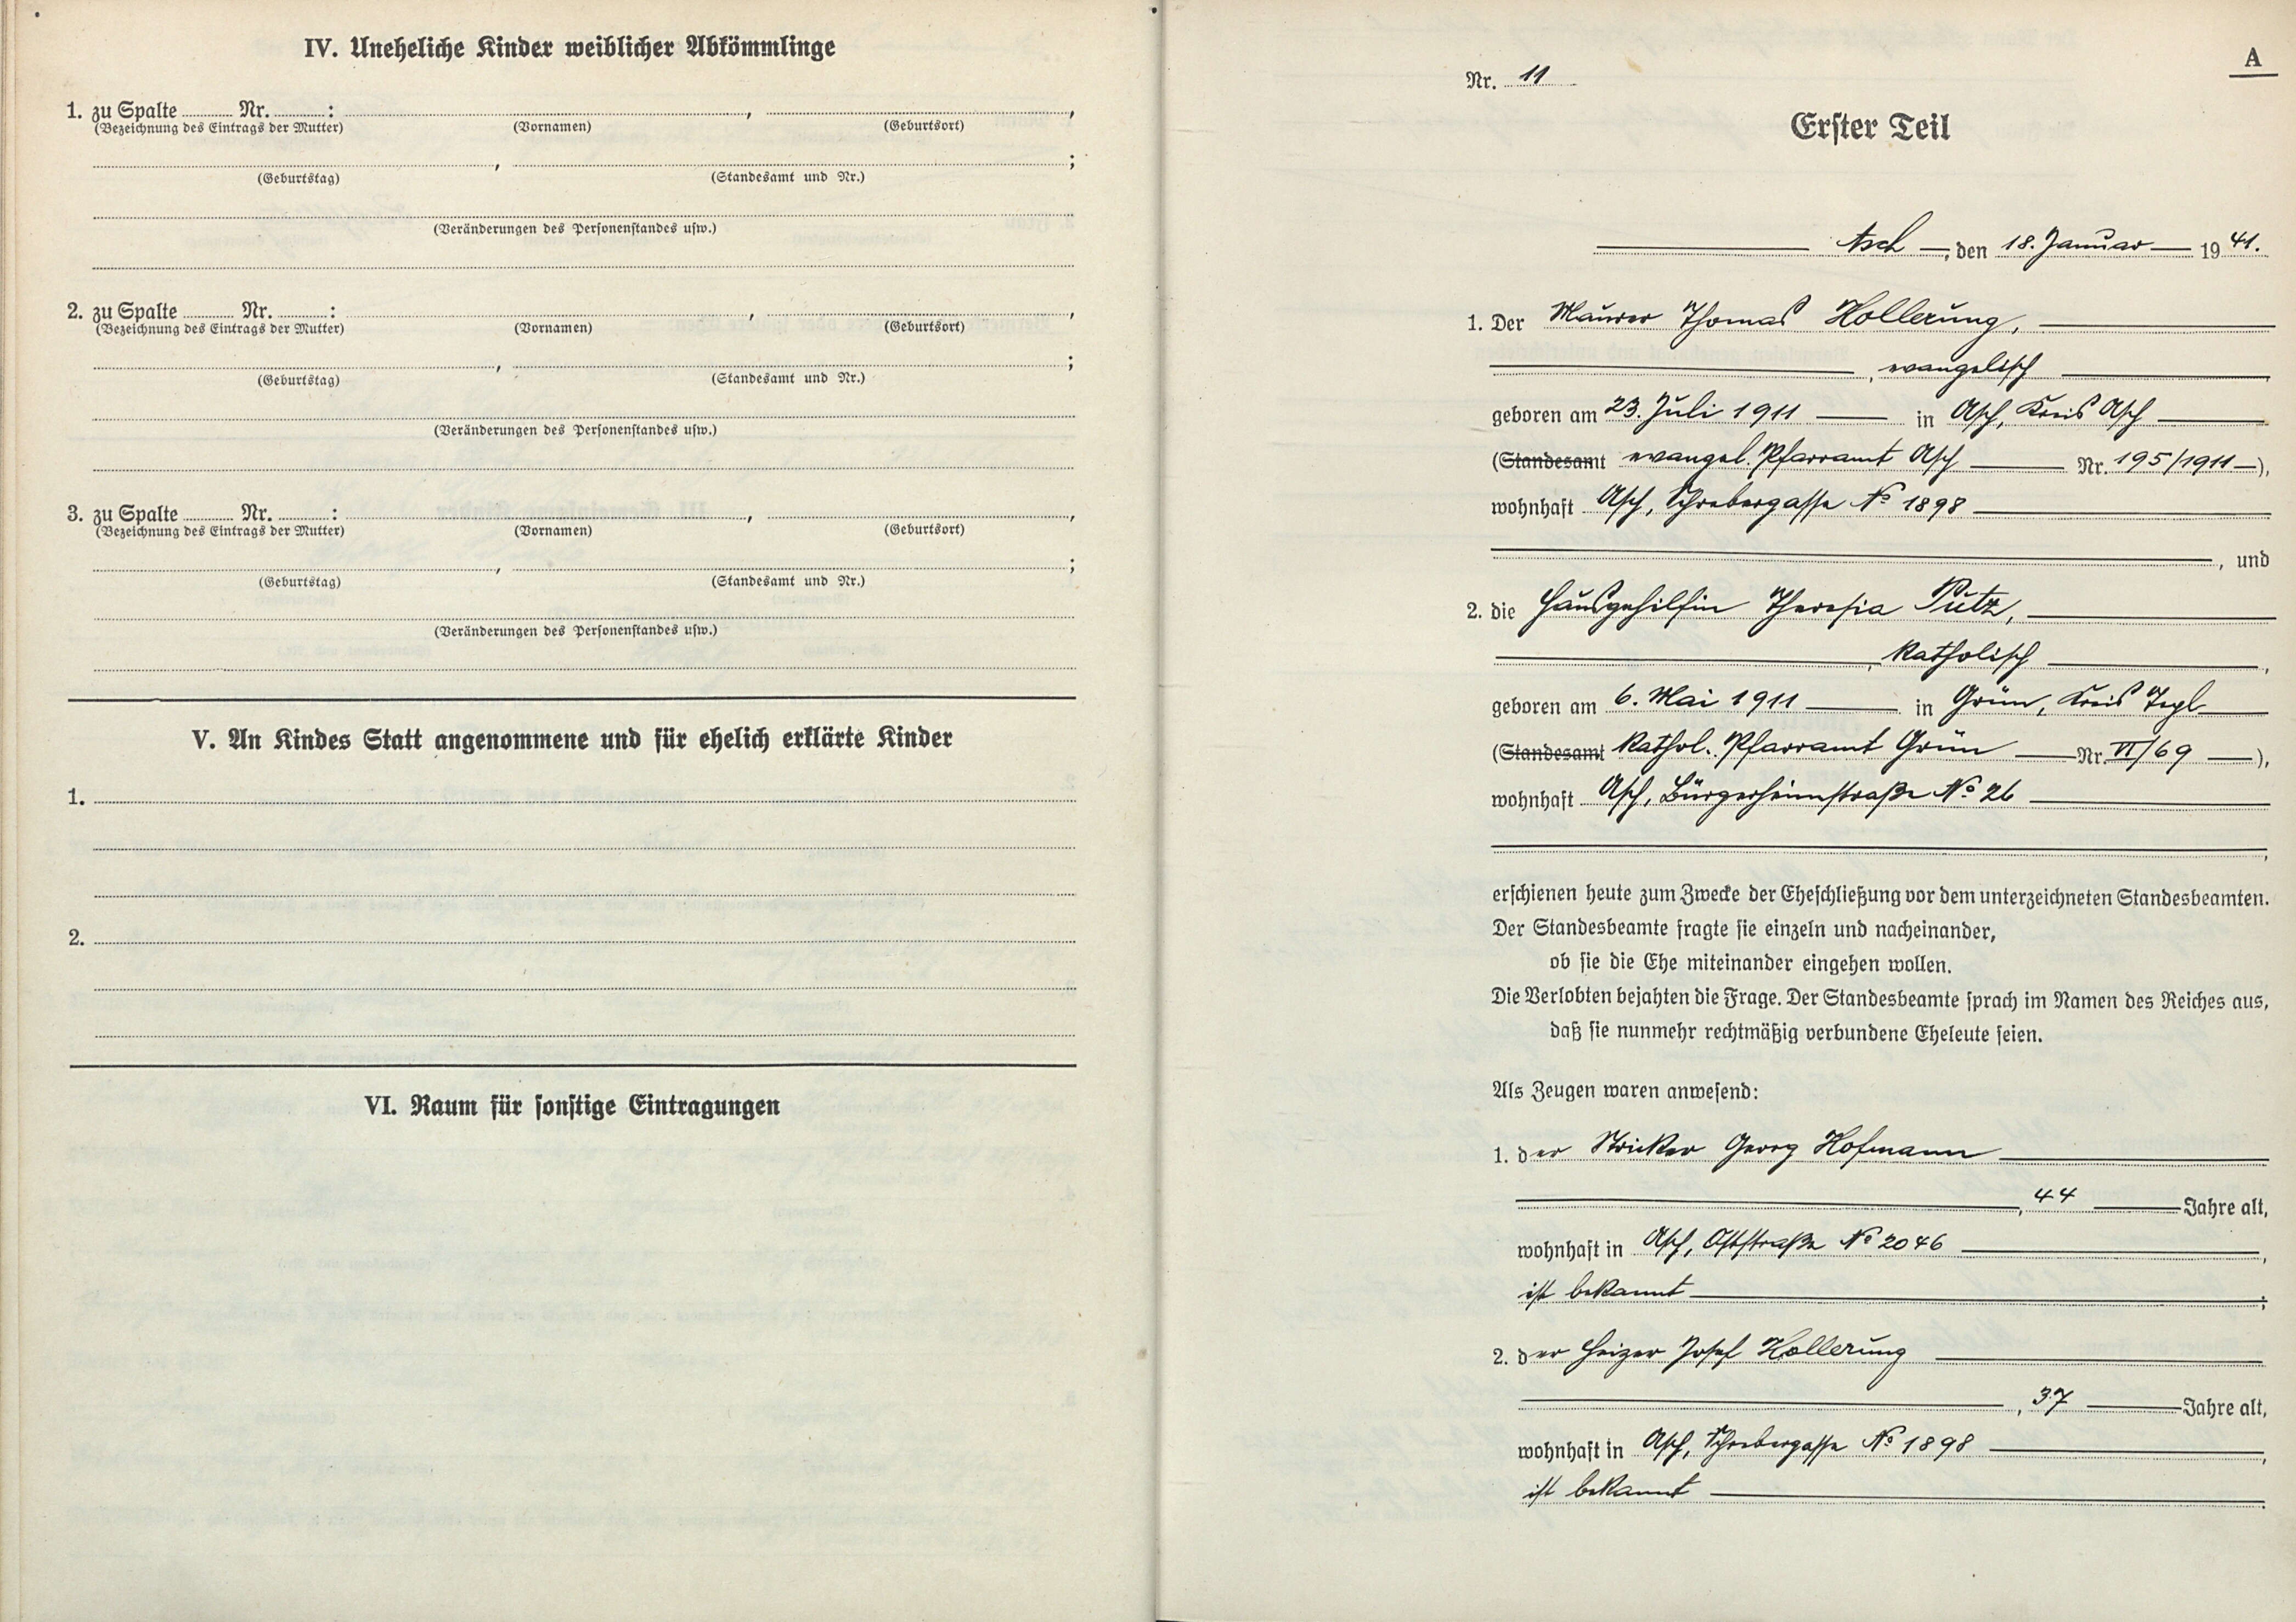 IV. Uneheliche Kinder weiblicher Abkömmlinge
1. zu Spalte ........ Nr. ........:
(Bezeichnung des Eintrags der Mutter) (Vornamen) (Geburtsort)
(Geburtstag) (Standesamt und Nr.)
(Veränderungen des Personenstandes usw.)
2. zu Spalte ........ Nr. ........:
(Bezeichnung des Eintrags der Mutter) (Vornamen) (Geburtsort)
(Geburtstag) (Standesamt und Nr.)
(Veränderungen des Personenstandes usw.)
3. zu Spalte ........ Nr. ........:
(Bezeichnung des Eintrags der Mutter) (Vornamen) (Geburtsort)
(Geburtstag) (Standesamt und Nr.)
(Veränderungen des Personenstandes usw.)
V. An Kindes Statt angenommene und für ehelich erklärte Kinder
1.
2.
VI. Raum für sonstige Eintragungen
A
Nr. 11
Erster Teil
Asch, den 18. Januar 1941.
1. Der Maurer Thomas Hollerung,
, evangelisch,
geboren am 23. Juli 1911 in Asch, Kreis Asch
(Standesamt evangel. Pfarramt Asch Nr. 195/1911),
wohnhaft Asch, Schrebergasse No 1898
, und
2. die Hausgehilfin Theresia Putz,
, katholisch,
geboren am 6. Mai 1911 in Grün, Kreis Tepl
(Standesamt kathol. Pfarramt Grün Nr. VI/69),
wohnhaft Asch, Bürgerheimstraße No 26
,
erschienen heute zum Zwecke der Eheschließung vor dem unterzeichneten Standesbeamten.
Der Standesbeamte fragte sie einzeln und nacheinander,
ob sie die Ehe miteinander eingehen wollen.
Die Verlobten bejahten die Frage. Der Standesbeamte sprach im Namen des Reiches aus,
daß sie nunmehr rechtmäßig verbundene Eheleute seien.
Als Zeugen waren anwesend:
1. der Stricker Georg Hofmann
, 44 Jahre alt,
wohnhaft in Asch, Oststraße No 2046,
ist bekannt;
2. der Heizer Josef Hollerung
, 37 Jahre alt,
wohnhaft in Asch, Schrebergasse No 1898,
ist bekannt.